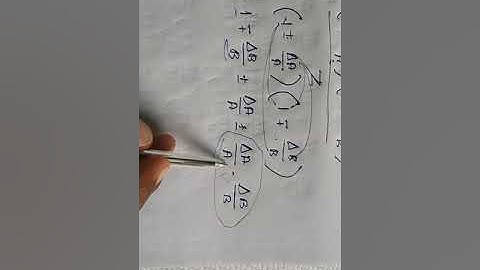 (1 ± ΔA/A) (1 ∓ ΔB/B)
1 ∓ ΔB/B ± ΔA/A ± ΔA/A · ΔB/B